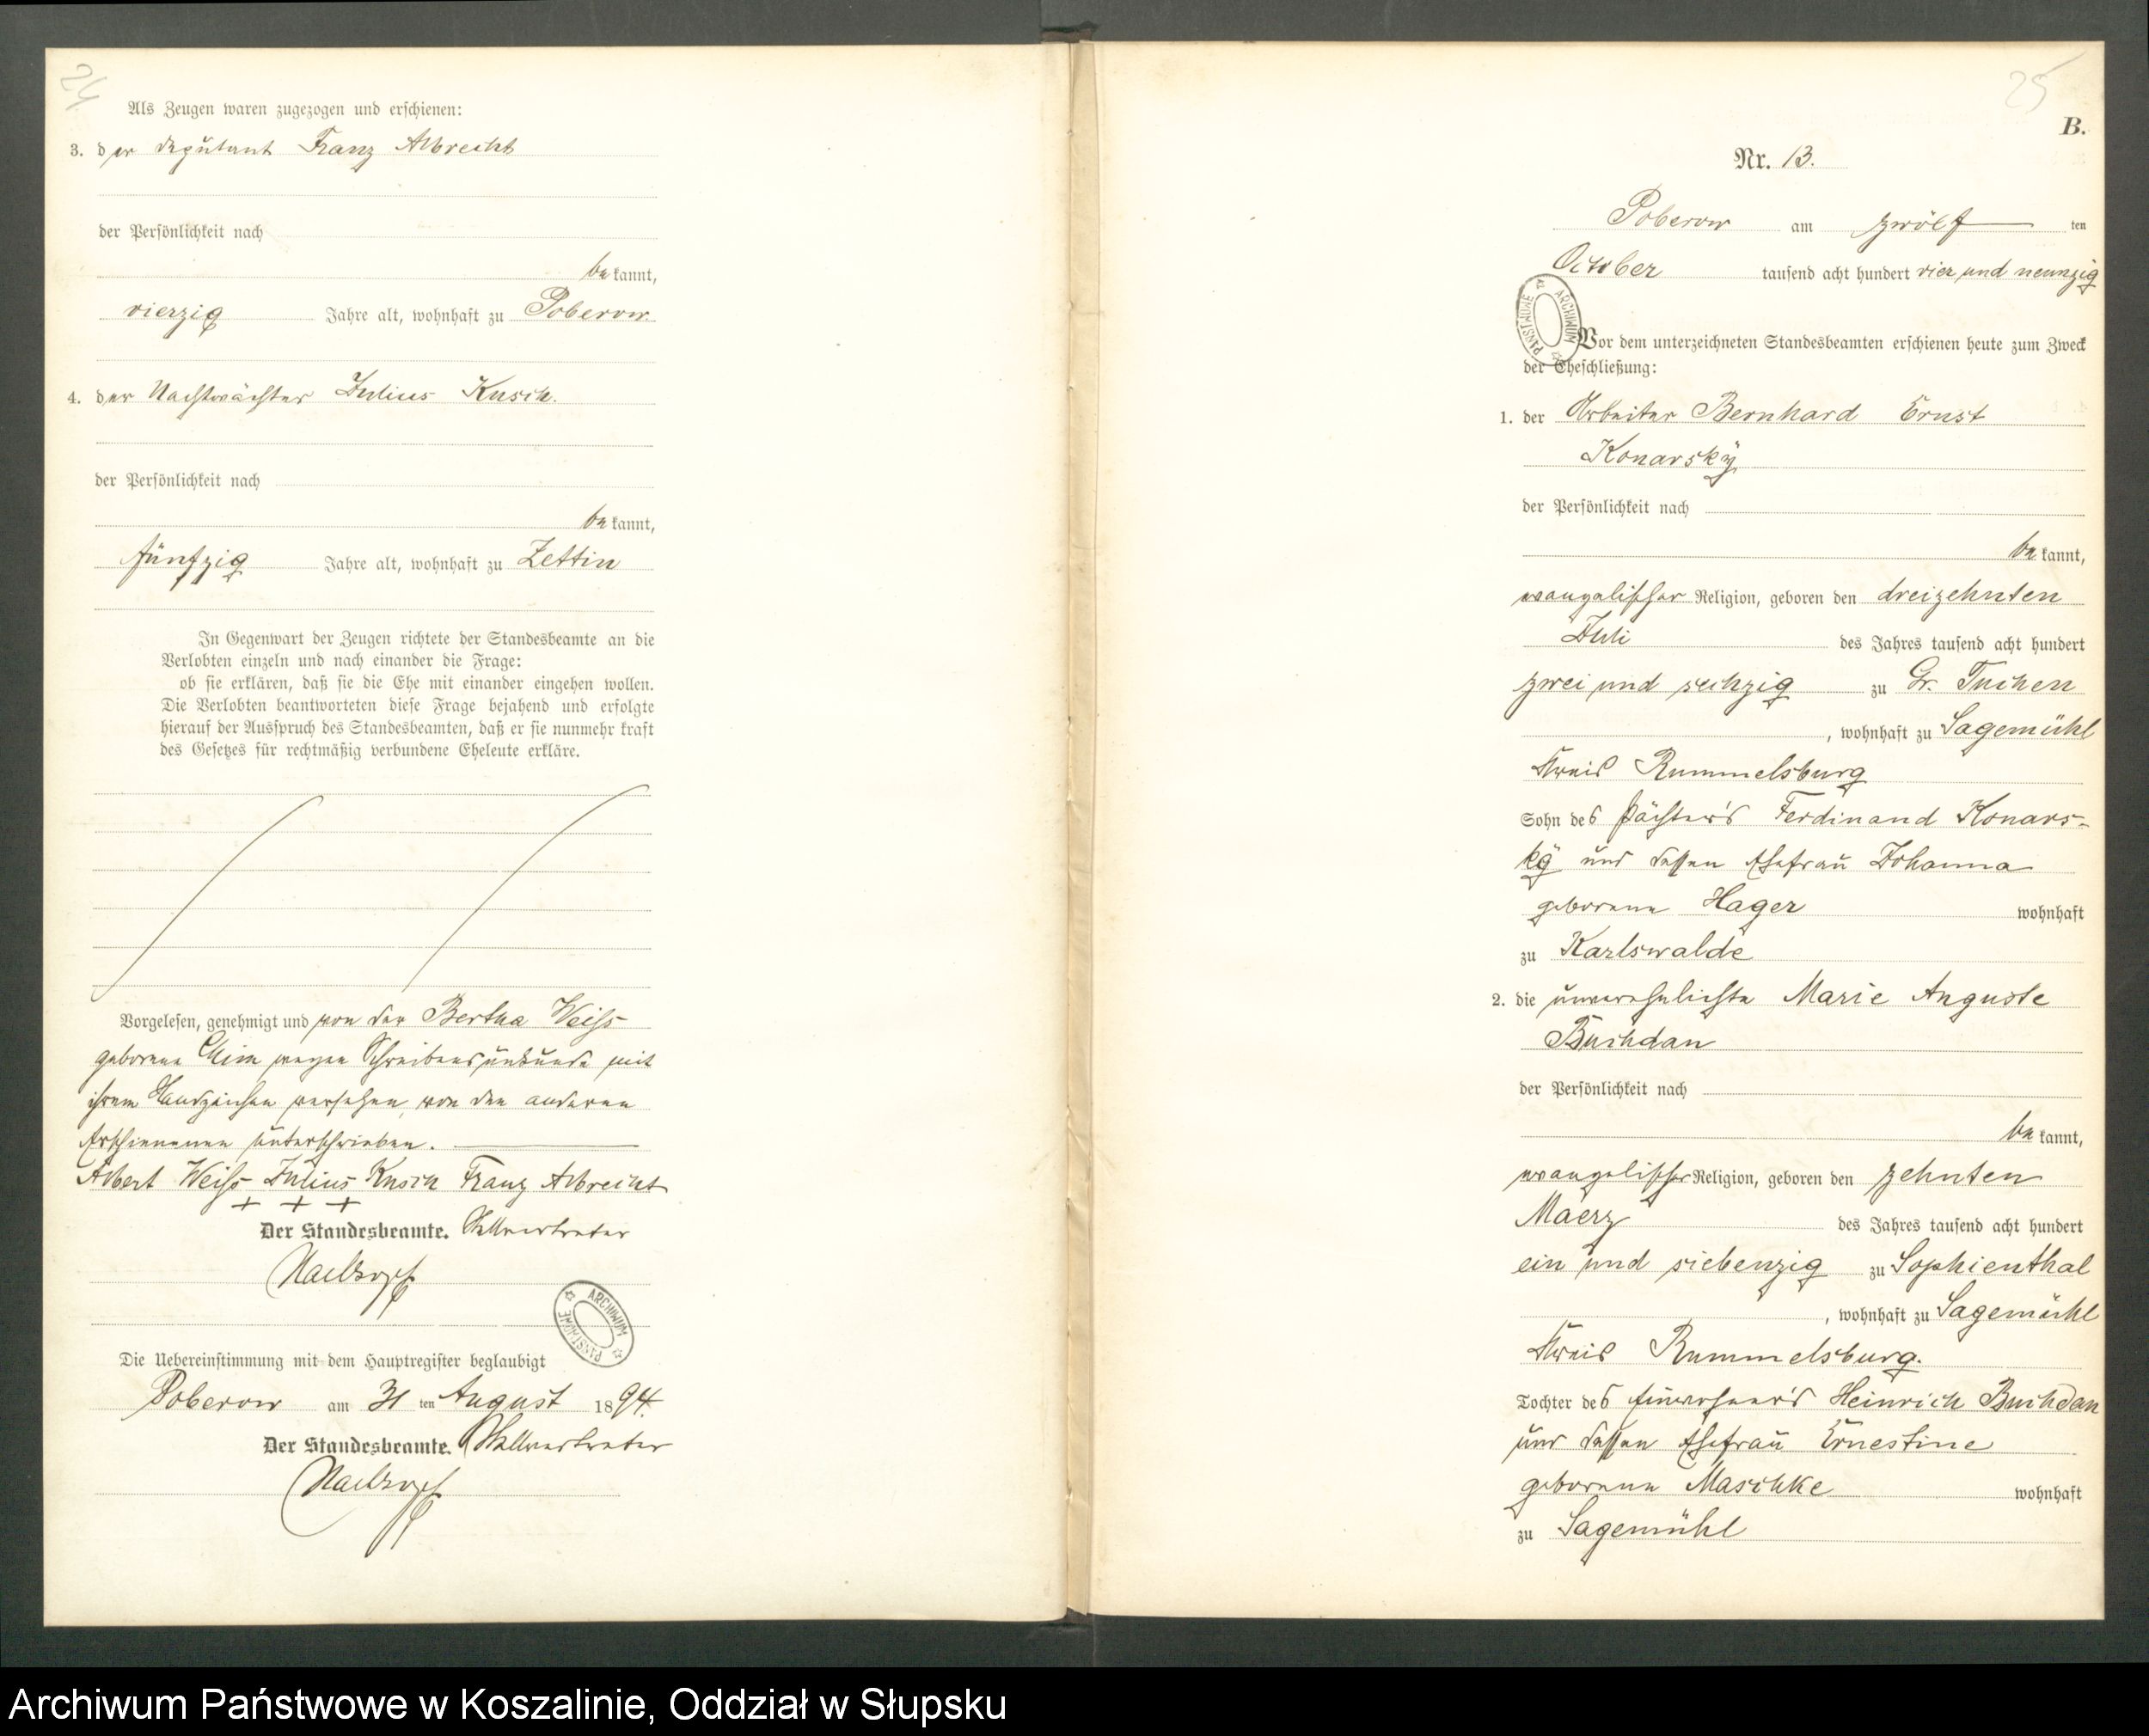 24
Als Zeugen waren zugezogen und erschienen:
3. der Deputant Franz Albrecht
der Persönlichkeit nach
bekannt,
vierzig Jahre alt, wohnhaft zu Poberow.
4. der Nachtwächter Julius Kusch.
der Persönlichkeit nach
bekannt,
fünfzig Jahre alt, wohnhaft zu Zettin
In Gegenwart der Zeugen richtete der Standesbeamte an die
Verlobten einzeln und nach einander die Frage:
ob sie erklären, daß sie die Ehe mit einander eingehen wollen.
Die Verlobten beantworteten diese Frage bejahend und erfolgte
hierauf der Ausspruch des Standesbeamten, daß er sie nunmehr kraft
des Gesetzes für rechtmäßig verbundene Eheleute erkläre.
Vorgelesen, genehmigt und von der Bertha Weiß
geborene wegen Schreibensunkunde mit
ihrem Handzeichen versehen, von den anderen
Erschienenen unterschrieben.
Albert Weiß Julius Kusch Franz Albrecht
+ + +
Der Standesbeamte. Stellvertreter
ARCHIWUM PAŃSTWOWE
Die Uebereinstimmung mit dem Hauptregister beglaubigt
Poberow am 31 ten August 1894.
Der Standesbeamte. Stellvertreter
25
B.
Nr. 13.
Poberow am zwölf ten
October tausend acht hundert vier und neunzig
ARCHIWUM PAŃSTWOWE
Vor dem unterzeichneten Standesbeamten erschienen heute zum Zweck
der Eheschließung:
1. der Arbeiter Bernhard Ernst
Konarsky
der Persönlichkeit nach
bekannt,
evangelischer Religion, geboren den dreizehnten
Juli des Jahres tausend acht hundert
zwei und sechzig zu Gr. Tuchen
, wohnhaft zu Sagemühl
Kreis Rummelsburg
Sohn des Pächter's Ferdinand Konars-
ky und dessen Ehefrau Johanna
geborene Hager wohnhaft
zu Karlswalde
2. die unverehelichte Marie Auguste
Buchdan
der Persönlichkeit nach
bekannt,
evangelischer Religion, geboren den zehnten
Maerz des Jahres tausend acht hundert
ein und siebenzig zu Sophienthal
, wohnhaft zu Sagemühl
Kreis Rummelsburg.
Tochter des Einwohner's Heinrich Buchdan
und dessen Ehefrau Ernestine
geborene Maschke wohnhaft
zu Sagemühl
Archiwum Państwowe w Koszalinie, Oddział w Słupsku